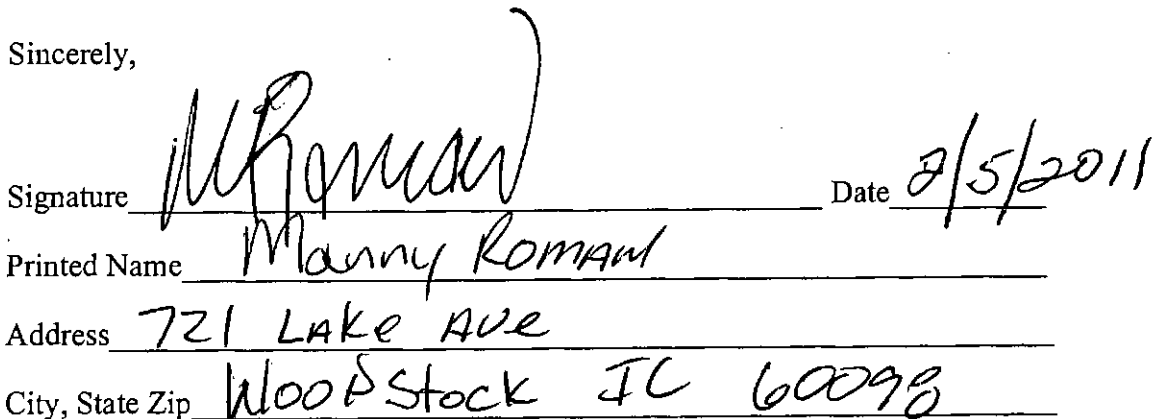 Sincerely,
Signature MRoman Date 2/5/2011
Printed Name Manny Roman
Address 721 Lake Ave
City, State Zip Woodstock IL 60098